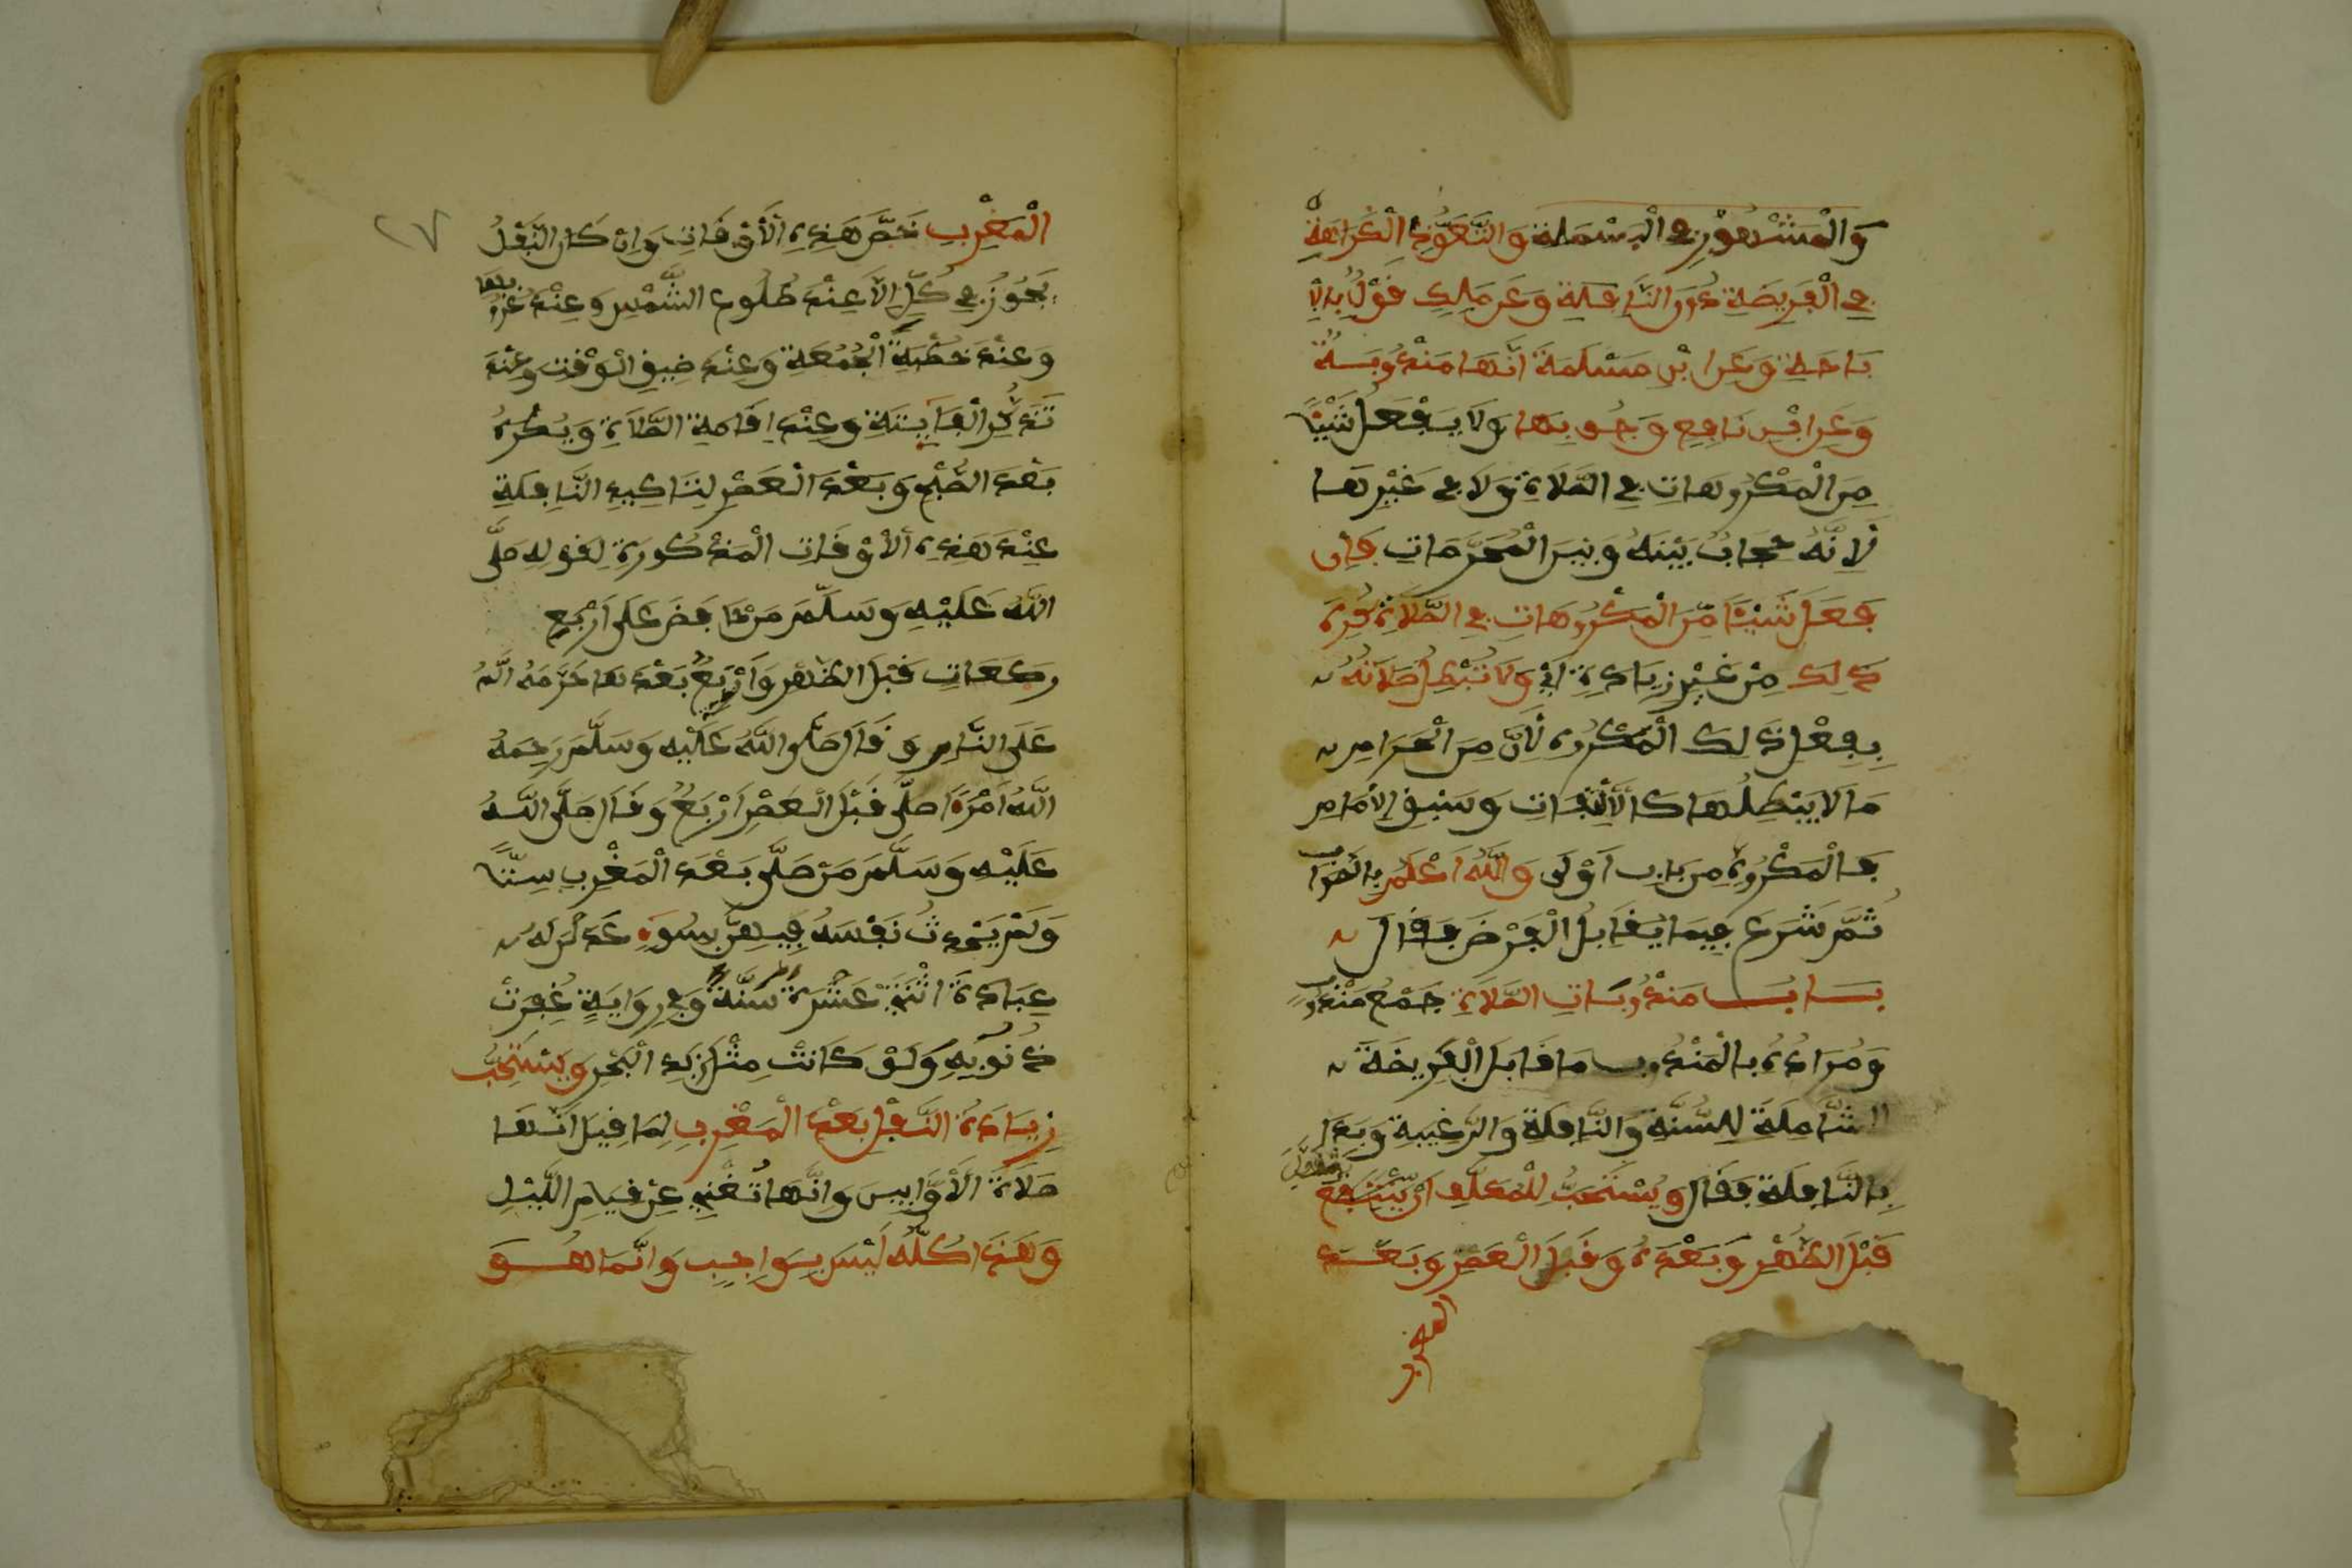 وَالْمَشْهُورُ فِي الْبَسْمَلَةِ وَالتَّعَوُّذِ الْكَرَاهَةُ
فِي الْفَرِيضَةِ دُونَ النَّافِلَةِ وَعَن مَالِكٍ قَوْلٌ بِالْإِ
بَاحَةِ وَعَن ابْنِ مَسْلَمَةَ أَنَّهَا مَنْدُوبَةٌ
وَعَنِ ابْنِ نَافِعٍ وُجُوبُهَا وَلَا يَفْعَلُ شَيْئًا
مِنَ الْمَكْرُوهَاتِ فِي الصَّلَاةِ وَلَا فِي غَيْرِهَا
لِأَنَّهُ حِجَابٌ بَيْنَهُ وَبَيْنَ الْمُحَرَّمَاتِ فَإِن
فَعَلَ شَيْئًا مِّنَ الْمَكْرُوهَاتِ فِي الصَّلَاةِ كُرِهَ
ذَلِكَ مِنْ غَيْرِ زِيَادَةٍ أَيْ وَلَا تَبْطُلُ صَلَاتُهُ
بِفِعْلِ ذَلِكَ الْمَكْرُوهِ لِأَنَّ مِنَ الْحَرَامِ
مَا لَا يُبْطِلُهَا كَالْالْتِفَاتِ وَسَبْقِ الْإِمَامِ
فَالْمَكْرُوهُ مِن بَابِ أَوْلَى وَاللَّهُ أَعْلَمُ بِالصَّوَابِ
ثُمَّ شَرَعَ فِيمَا يُقَابِلُ الْفَرْضَ فَقَالَ
بَابُ مَنْدُوبَاتِ الصَّلَاةِ جَمْعُ مَنْدُوبٍ
وَمُرَادُهُ بِالْمَنْدُوبِ مَا قَابَلَ الْفَرِيضَةَ
الشَّامِلَةَ لِلسُّنَّةِ وَالنَّافِلَةِ وَالرَّغِيبَةِ وَبَدَأَ
بِالنَّافِلَةِ فَقَالَ وَيُسْتَحَبُّ لِلْمُكَلَّفِ أَن يَّتَنَفَّلَ
قَبْلَ الظُّهْرِ وَبَعْدَهُ وَقَبْلَ الْعَصْرِ وَبَعْدَ
المغرب
٢٧
الْمَغْرِبِ خَصَّ هَذِهِ الْأَوْقَاتِ وَإِن كَانَ النَّفْلُ
يَجُوزُ فِي كُلٍّ إِلَّا عِنْدَ طُلُوعِ الشَّمْسِ وَعِنْدَ غُرُوبِهَا
وَعِنْدَ خُطْبَةِ الْجُمُعَةِ وَعِنْدَ ضِيقِ الْوَقْتِ وَعِنْدَ
تَذَكُّرِ الْفَائِتَةِ وَعِنْدَ إِقَامَةِ الصَّلَاةِ وَيُكْرَهُ
بَعْدَ الصُّبْحِ وَبَعْدَ الْعَصْرِ لِتَأْكِيدِ النَّافِلَةِ
عِنْدَ هَذِهِ الْأَوْقَاتِ الْمَذْكُورَةِ لِقَوْلِهِ صَلَّى
اللَّهُ عَلَيْهِ وَسَلَّمَ مَنْ حَافَظَ عَلَى أَرْبَعِ
رَكَعَاتٍ قَبْلَ الظُّهْرِ وَأَرْبَعٌ بَعْدَهَا حَرَّمَهُ اللَّهُ
عَلَى النَّارِ وَقَالَ صَلَّى اللَّهُ عَلَيْهِ وَسَلَّمَ رَحِمَهُ
اللَّهُ امْرَءًا صَلَّى قَبْلَ الْعَصْرِ أَرْبَعٌ وَقَالَ صَلَّى اللَّهُ
عَلَيْهِ وَسَلَّمَ مَنْ صَلَّى بَعْدَ الْمَغْرِبِ سِتًّا
وَلَمْ يُحْدِثْ نَفْسَهُ فِيهِنَّ بِسُوءٍ عَدَلْنَ لَهُ
عِبَادَةَ اثْنَتَيْ عَشْرَةَ سَنَةً وَفِي رِوَايَةٍ غُفِرَتْ
ذُنُوبُهُ وَلَوْ كَانَتْ مِثْلَ زَبَدِ الْبَحْرِ وَيُسْتَحَبُّ
زِيَادَةُ النَّفْلِ بَعْدَ الْمَغْرِبِ لِمَا قِيلَ أَنَّهَا
صَلَاةُ الْأَوَّابِينَ وَإِنَّهَا تُغْنِي عَنْ قِيَامِ اللَّيْلِ
وَهَذَا كُلُّهُ لَيْسَ بِوَاجِبٍ وَإِنَّمَا هُوَ